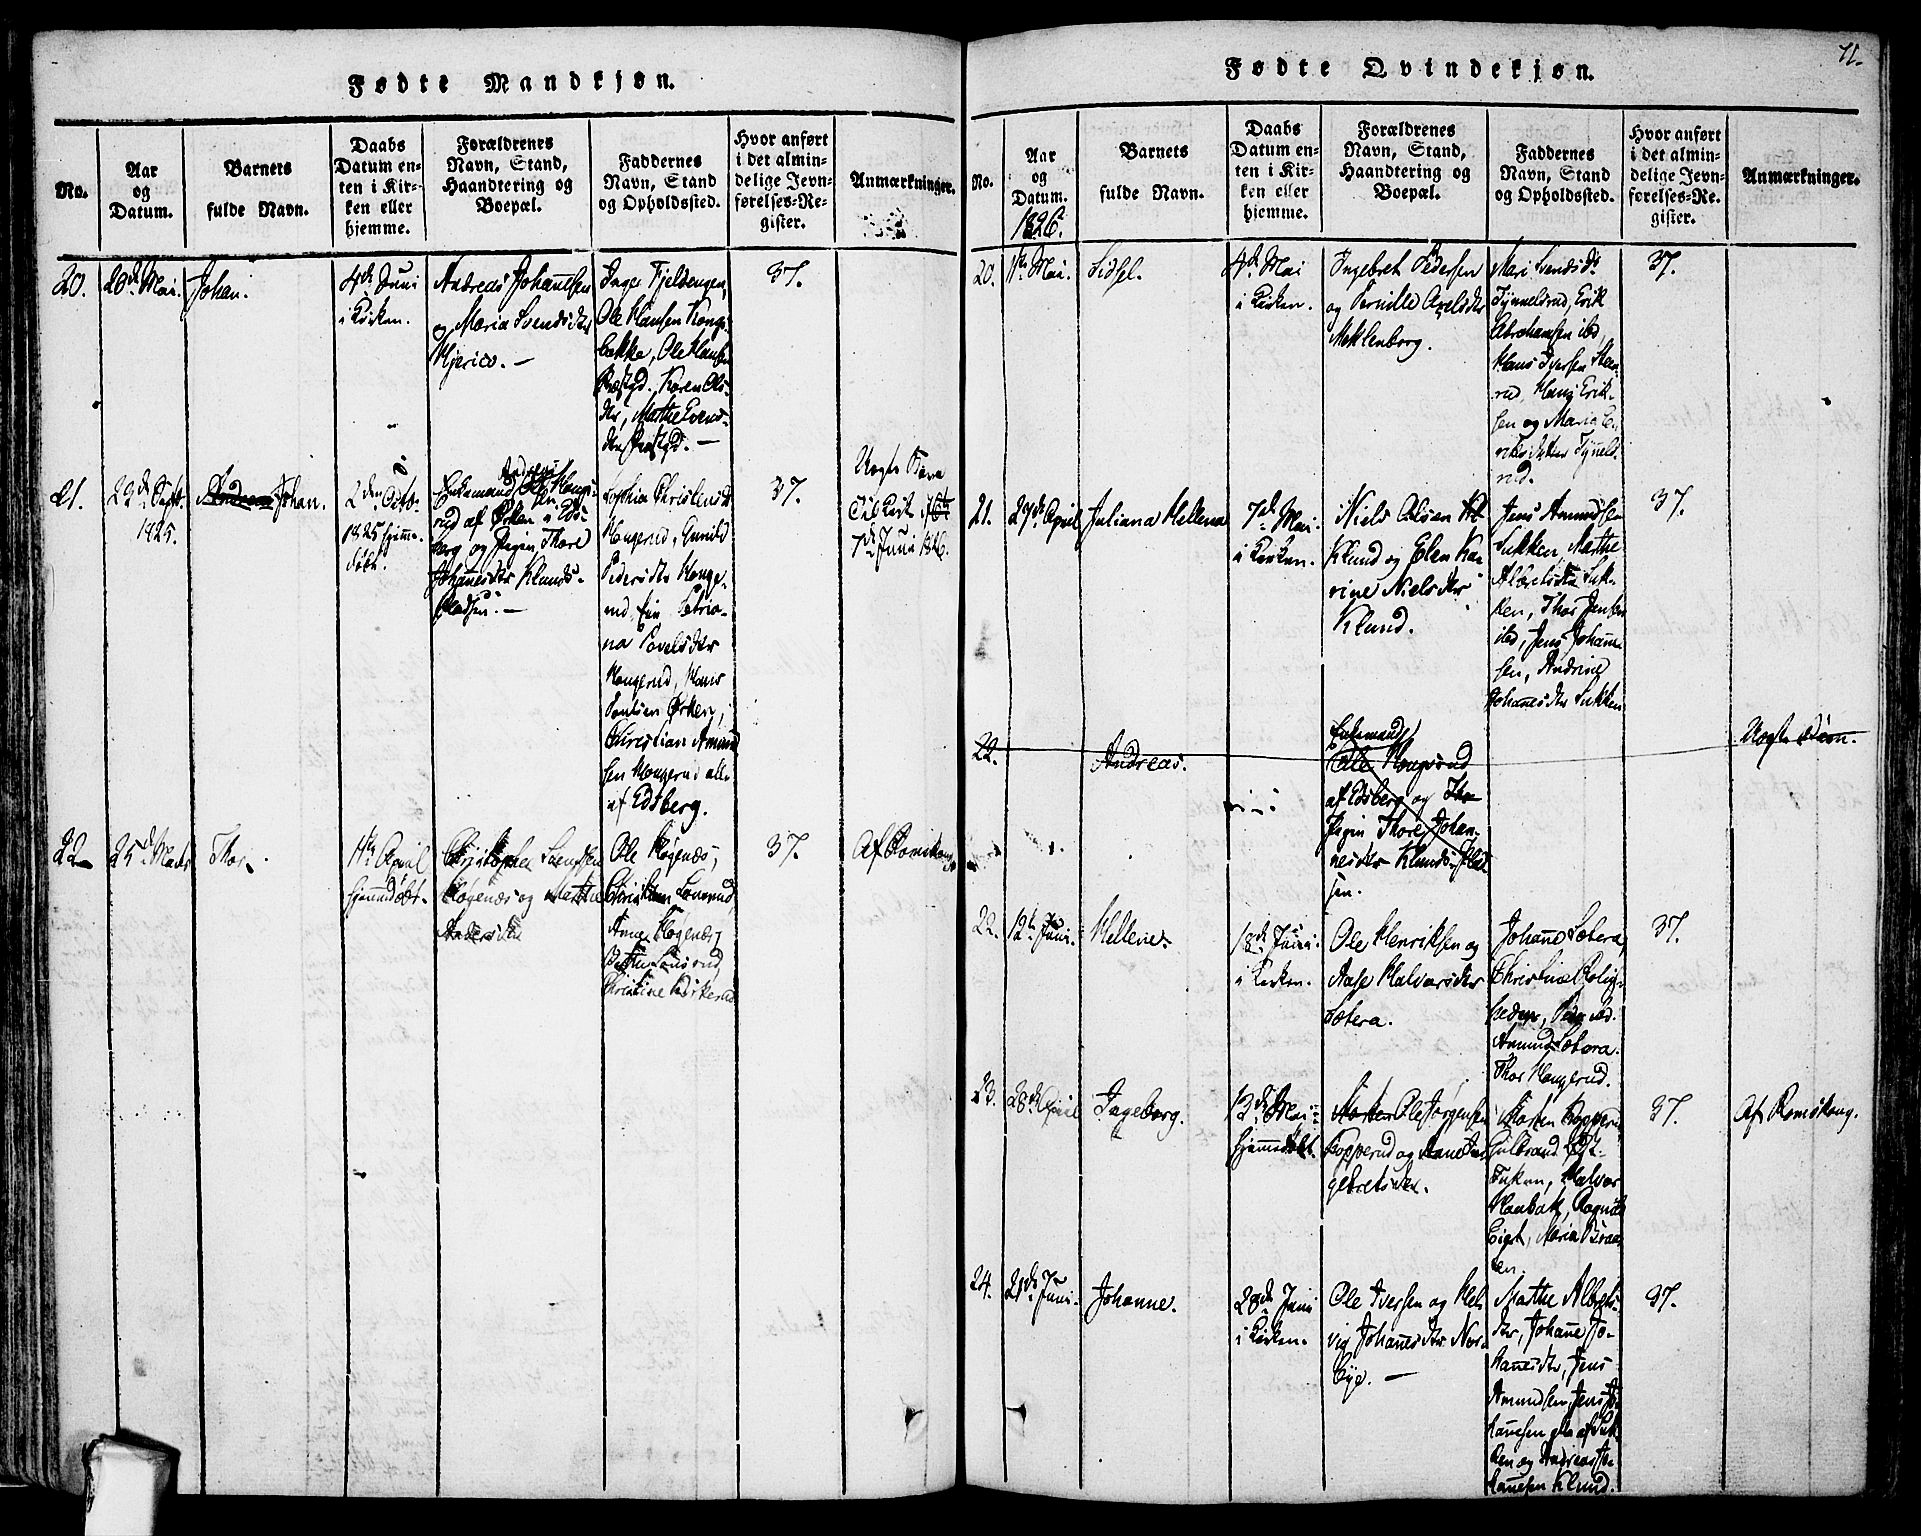 71.
Fødte Mandkjøn.
No.
Aar
og
Datum.
Barnets
fulde Navn.
Daabs
Datum en-
ten i Kir-
ken eller
hjemme.
Forældrenes
Navn, Stand,
Haandtering og
Boepæl.
Faddernes
Navn, Stand
og Opholdssted.
Hvor anført
i det almin-
delige Jevn-
førelses-Re-
gister.
Anmærkninger.
20.
26de Mai.
Johan.
4de Juni
i Kirken.
Andreas Johannesen
og Maria Svendsdtr
Inger Fjeldengen,
Ole Hansen Kongs-
bække, Ole Hansen
Præstgd. Karen Ols-
dtr, Marthe Svens-
dtr Præstgd. —
37.
21.
29de Sept.
1825.
Andreas Johan.
2den Octo-
1825 hjemme-
døbt.
Enkemand Andreas Ole Honge-
rud af Ørken i Eds-
berg og Pigen Thore
Johannesdtr Klunds-
Pladsen. —
Sophia Christensd
Hongerud, Gunild
Pedersdtr Honge-
rud,
Povelsdtr
Hongerud, Hans
Poulsen Ørken,
Christian Amund-
sen Hongerud alle
af Edsberg.
37.
Uægte Børn
7de Juni 1826.
22
25de Marts
Thor.
11te April
hjemmedøbt.
Christopher Svendsen
Høgenæs og Marthe
Andersdtr
Ole Høgenæs,
Christian Lonsrud,
Anne Høgenæs,
Berthe Lonsrud
Christine Kirkerud
37.
Af Romskoug
Fødte Qvindekjøn.
No.
Aar
og
Datum.
1826.
Barnets
fulde Navn.
Daabs
Datum en-
ten i Kir-
ken eller
hjemme.
Forældrenes
Navn, Stand,
Haandtering og
Boepæl.
Faddernes
Navn, Stand
og Opholdssted.
Hvor anført
i det almin-
delige Jevn-
førelses-Re-
gister.
Anmærkninger.
20.
1ste Mai.
Sidsel.
4de Mai
i Kirken.
Ingebret Pedersen
og Pernille Axelsdtr
Meklenborg.
Mari Svendsdr
Tynnelsrud, Erik
Abrahamsen ibd,
Hans Iversen Steen-
rud, Hans Erik-
sen og Maria E-
riksdatter Tynnels-
rud.
37.
21.
27de April
Juliana Hellena
7de Mai
i Kirken.
Niels Olsen
Klund og Elen Ka-
rine Nielsdtr
Klund.
Jens Amundsen
Sukken, Marthe
Albretsdtr Suk-
ken, Thor Jensen
ibd, Jens Johanne-
sen, Andrine
Johannesdtr Sukken
37.
22.
Andreas.
Enkemand
Ole Hongerud
af Edsberg og Tho
Pigen Thore Johan-
nesdtr Klunds-Plad-
sen.
Uægte Børn.
22.
12te Juni.
Hellene.
18de Juni
i Kirken.
Ole Henriksen og
Aase Halvorsdtr
Sætera.
Johanne Sætera,
Christine Rolig-
heden, Peder ibd.
Amund Sætera.
Thor Hongerud.
37.
23.
28de April
Ingeborg.
13de Mai
hjemmedøbt.
Morten Ole Jørgensen
Kopperud og Anne In-
gebretsdtr.
Morten Kopperud
Gulbrand Øst-
Tukun, Halvor
Haabøk, Ragnild
Eigst, Maria Braa-
ten.
37.
Af Romskoug.
24.
21de Juni.
Johanne.
28de Juni
i Kirken.
Ole Iversen og Hel-
vig Johannesdtr Nor-
bye. —
Marthe Albrets-
dtr, Johanne Jo-
hannesdtr, Jens
Amundsen, Jens Jo-
hannesen alle af Suk-
ken og Andreas Jo-
hannesen Klund.
37.